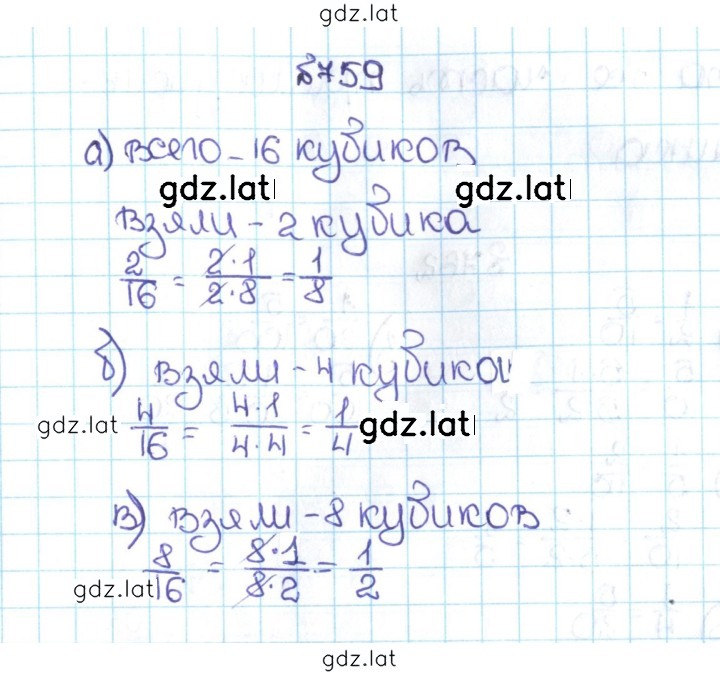 gdz.lat
№759
а) всего - 16 кубиков
gdz.lat gdz.lat
взяли - 2 кубика
2/16 = 2·1/2·8 = 1/8
б) взяли - 4 кубика
gdz.lat 4/16 = 4·1/4·4 = 1/4 gdz.lat
в) взяли - 8 кубиков
gdz.lat 8/16 = 8·1/8·2 = 1/2
gdz.lat